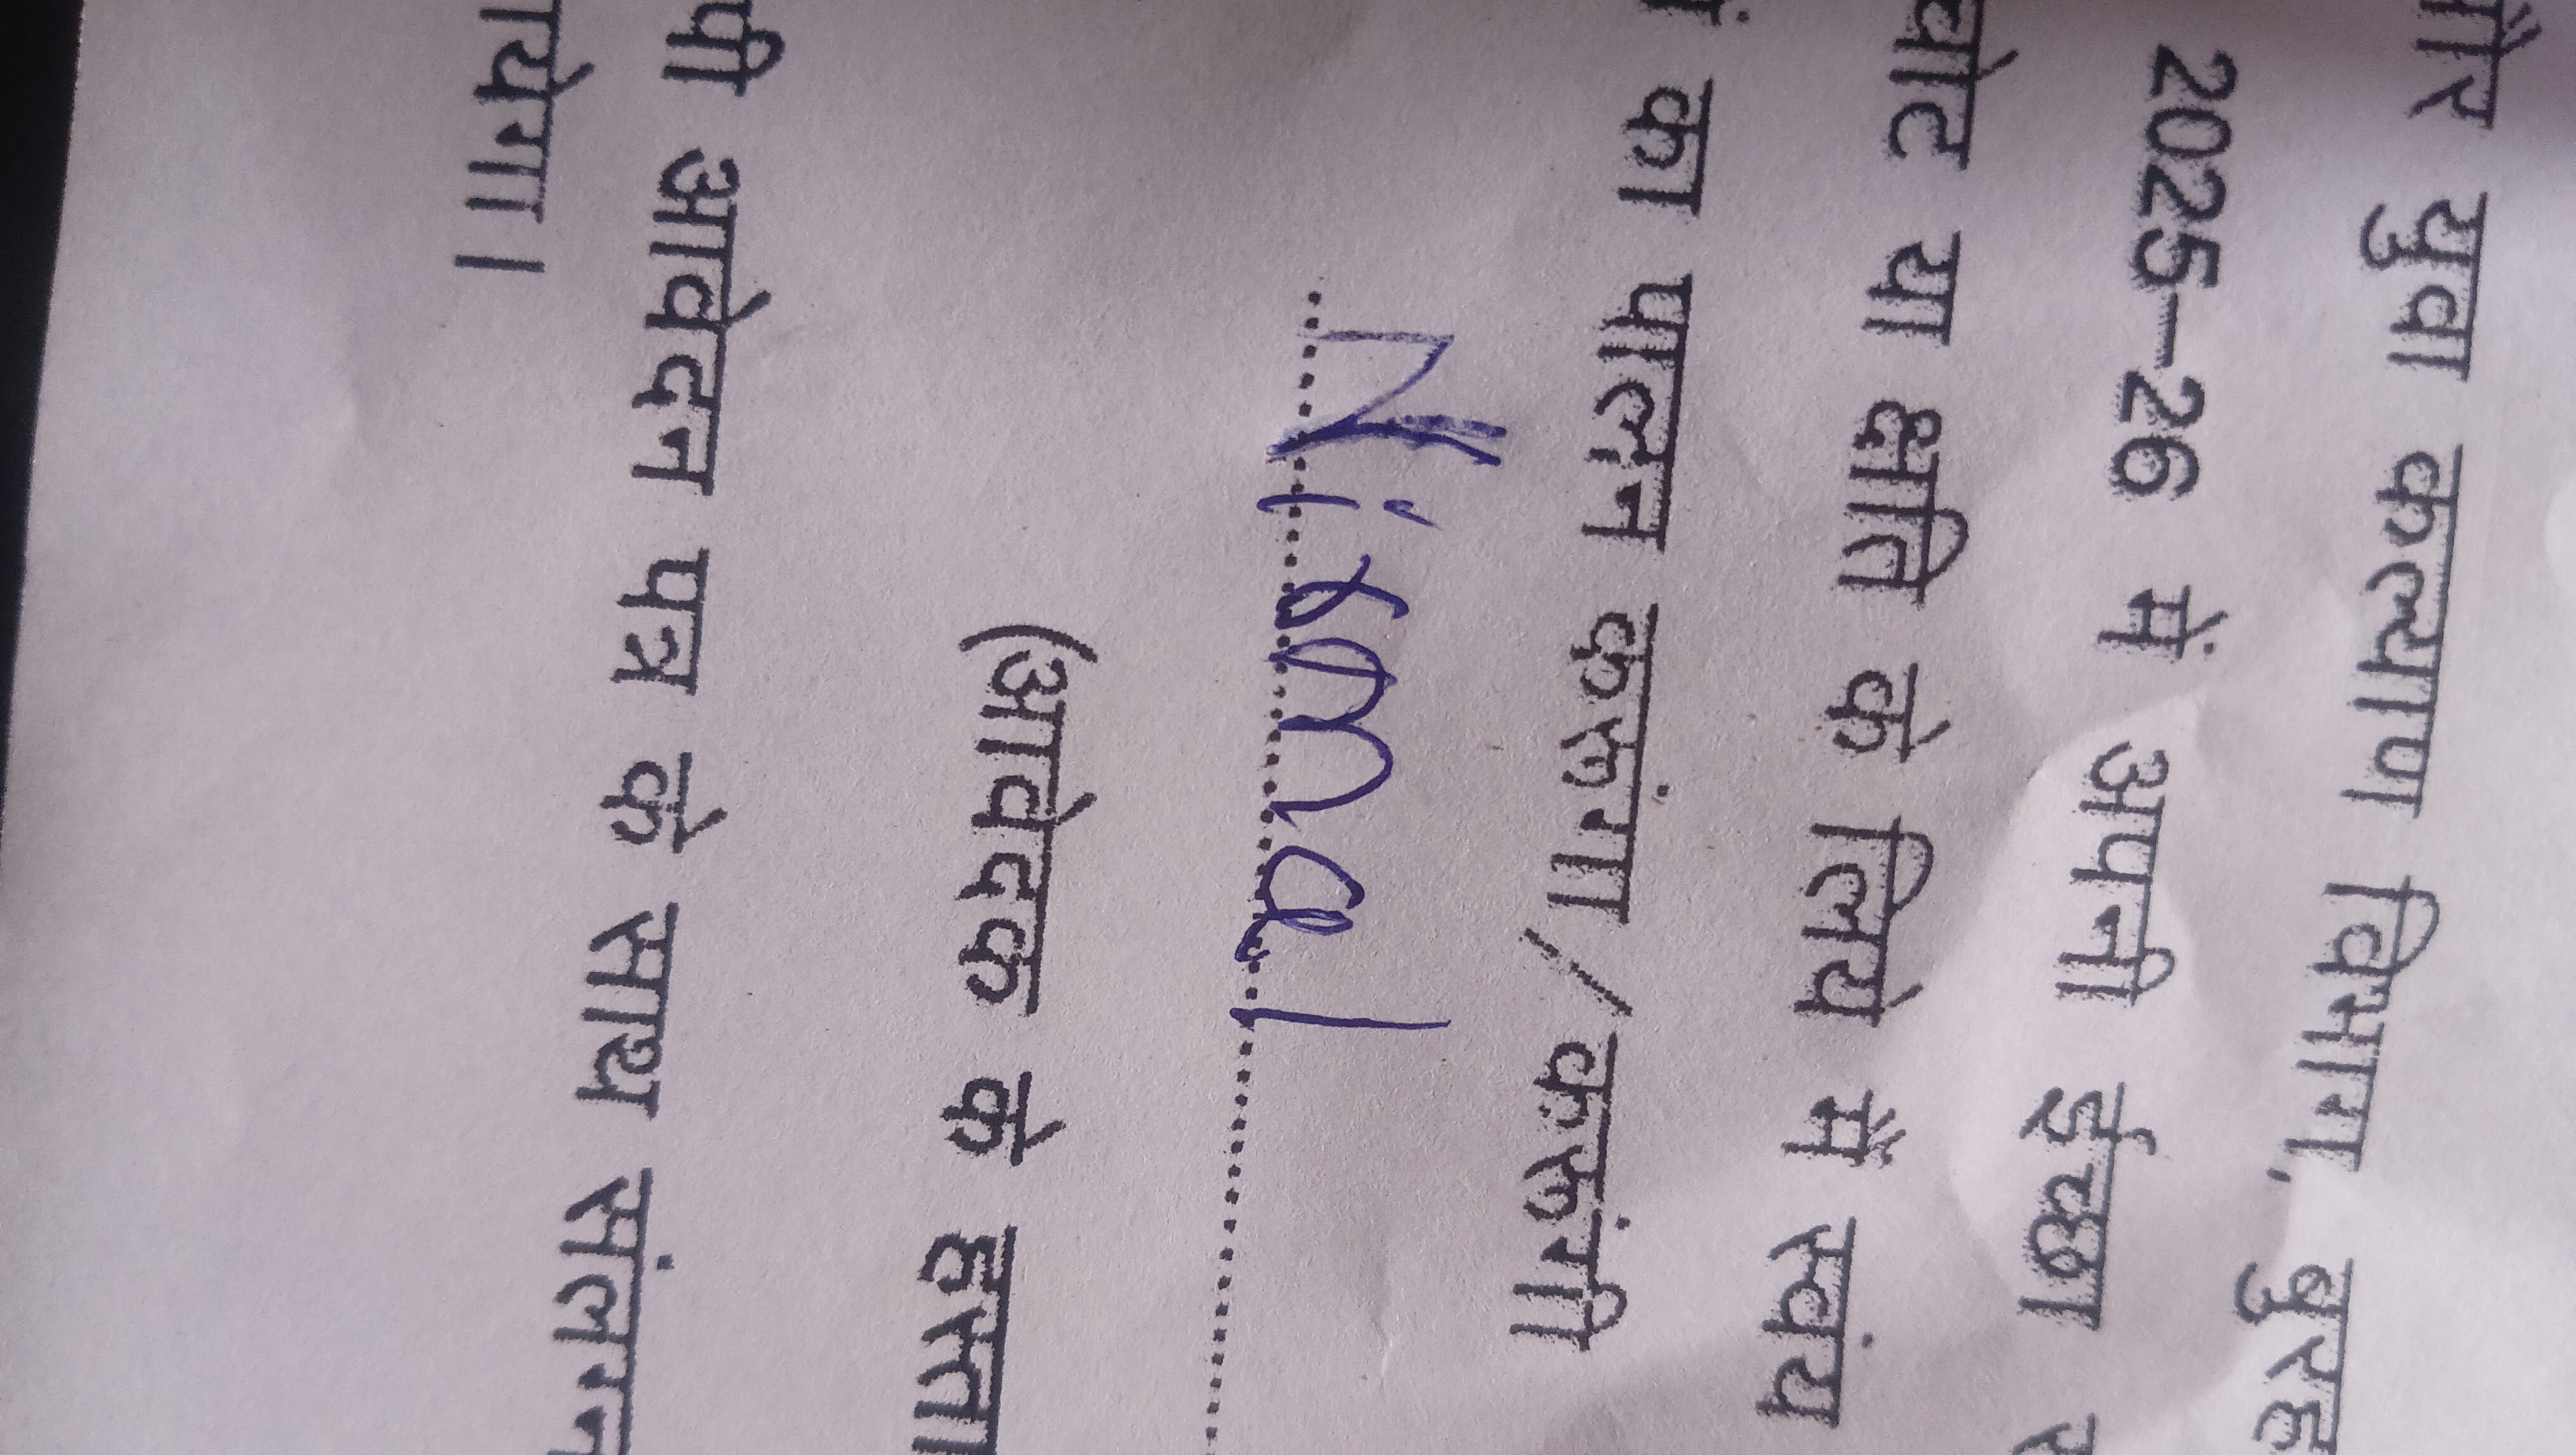 और युवा कल्याण विभाग, बुरह
2025–26 में अपनी ईच्छा
चोट या क्षति के लिये में स्वंय
का पालन करूंगा / करूंगी
Nirmal
(आवेदक के हस्ता
पी आवेदन पत्र के साथ संलग्न
येगा।